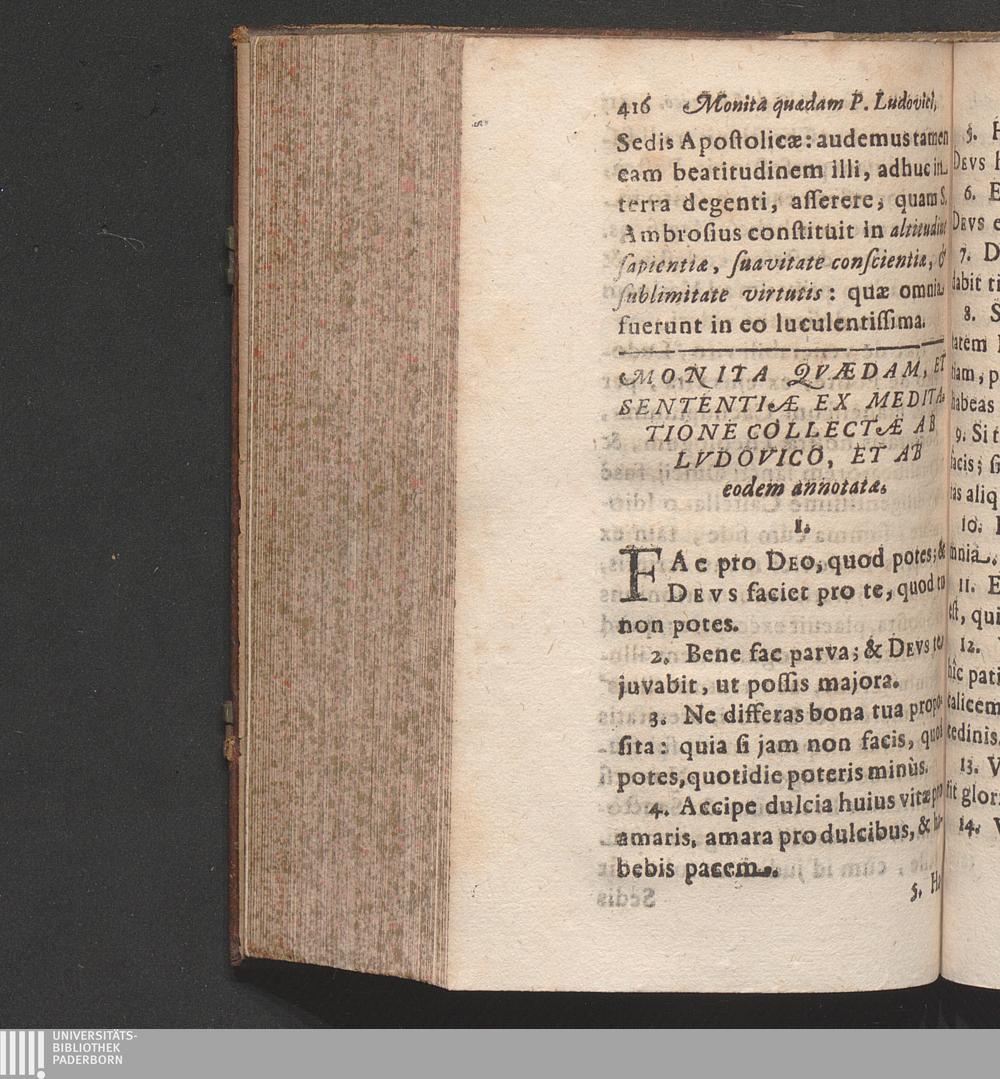 416 Monita quædam P. Ludovici,
Sedis Apoſtolicæ: audemus tamen
eam beatitudinem illi, adhuc in
terra degenti, aſſerere, quam S.
Ambroſius conſtituit in altitudine
ſapientiæ, ſuavitate conſcientiæ, &
ſublimitate virtutis: quæ omnia
fuerunt in eo luculentiſſima.
MONITA QVÆDAM, ET
SENTENTIÆ EX MEDITA-
TIONE COLLECTÆ AB
LVDOVICO, ET AB
eodem annotatæ.
1.
FAc pro DEO, quod potes; &
DEVS faciet pro te, quod tu
non potes.
2. Bene fac parva; & DEVS te
juvabit, ut poſſis majora.
3. Ne differas bona tua propo-
ſita: quia ſi jam non facis, quod
potes, quotidie poteris minùs.
4. Accipe dulcia huius vitæ pro
amaris, amara pro dulcibus, & ha-
bebis pacem.
5. Ha
5.
DEVS
6.
DEVS
7.
dabit
8.
9. Si
facis;
10.
11.
eſt, qui
12.
hîc
calicem
13.
14.
UNIVERSITÄTS-
BIBLIOTHEK
PADERBORN